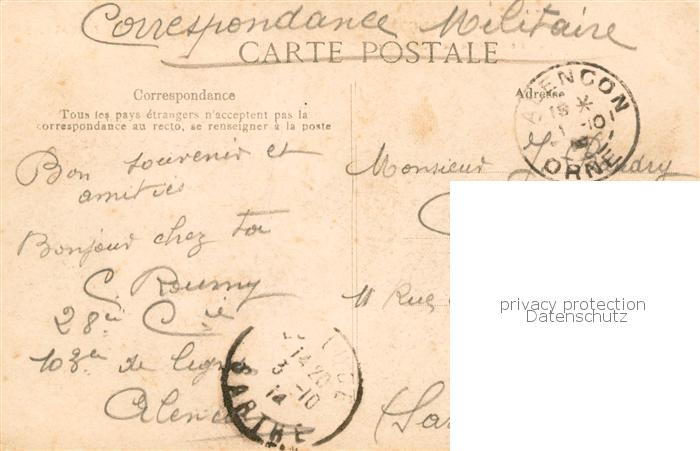 Correspondance Militaire
CARTE POSTALE
Correspondance
Tous les pays étrangers n'acceptent pas la
correspondance au recto, se renseigner à la poste
Bon souvenir et
amitiés
Bonjour chez toi
28è Cie
103è de ligne
Alen
SARTHE
1420
3-10
14
Adresse
ALENCON
ORNE
Monsieur
11 Rue
(Sar
privacy protection
Datenschutz